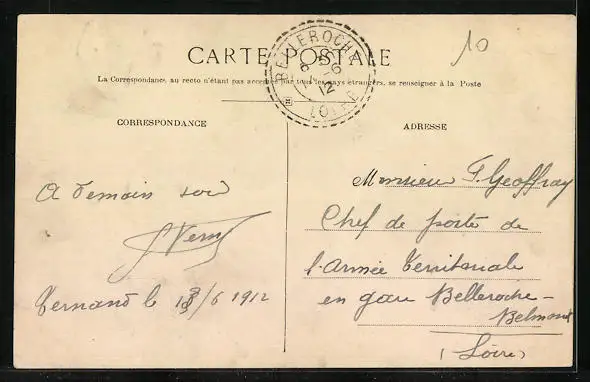 CARTE POSTALE
La Correspondance au recto n'étant pas acceptée par tous les pays étrangers, se renseigner à la Poste
BELLEROCHE
8-6
12
LOIRE
10
CORRESPONDANCE
A demain soir
Fernand le 8/6 1912
ADRESSE
Monsieur F. Geoffray
Chef de poste de
l'Armée territoriale
en gare Belleroche-
Belmont
(Loire)